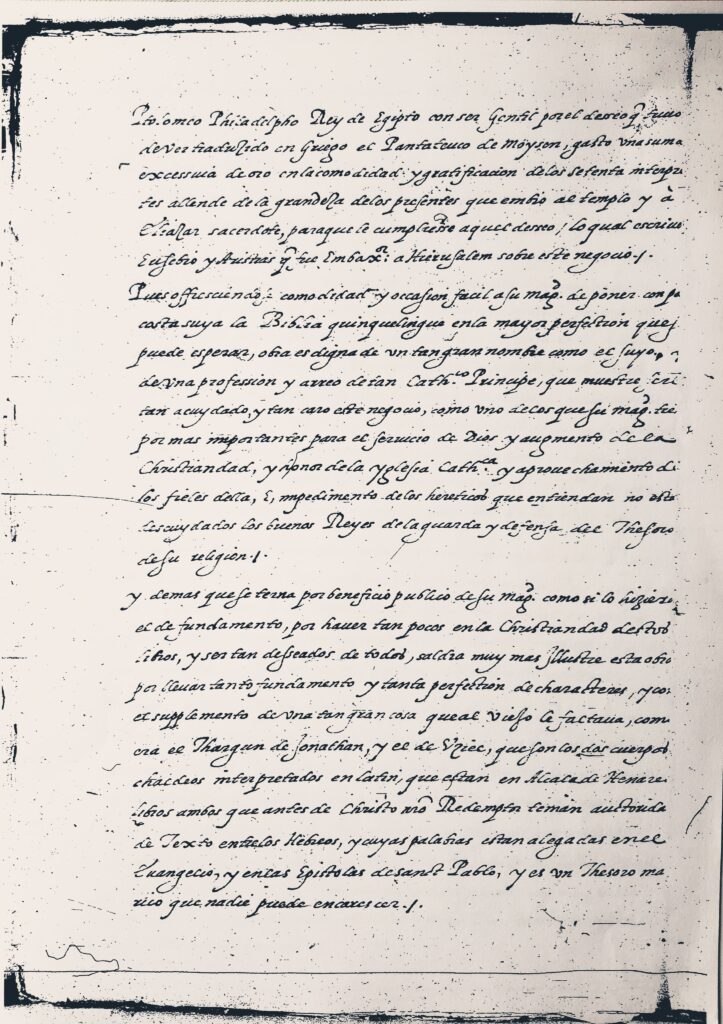 Ptolomeo Philadelpho Rey de Egipto con ser Gentil por el deseo q̃ tuvo
de ver traduzido en Griego el Pantateuco de Moysen, gasto una suma
excessiva de oro en la comodidad y gratificacion de los setenta interpre
tes allende de la grandeza de los presentes que embio al templo y à
Eleazar sacerdote, para que le cumpliesse aquel deseo, lo qual escrive
Eusebio y q̃ fue Embaxor. a Hierusalem sobre este negocio./.
Pues offresciendose comodidad y occasion facil a su magd. de poner con po
costa suya la Biblia quinquelingue en la mayor perfection que se
puede esperar, obra es digna de un tan gran nombre como el suyo, y
de una profession y arreo de tan Cathco. Principe, que muestre ser
tan a cuydado, y tan caro este negocio, como uno de los que su magd. tie
por mas importantes para el servicio de Dios y augmento de la
Christiandad, y honor de la yglesia Cathca. y aprovechamiento de
los fieles della, E, impedimento de los hereticos que entiendan no esta
descuydados los buenos Reyes de la guarda y defensa del Thesoro
de su religion./.
y demas que se terna por beneficio publico de su magd. como si lo hiziera
el de fundamento, por haver tan pocos en la Christiandad destos
libros, y ser tan desseados de todos, saldra muy mas jllustre esta obra
por llevar tanto fundamento y tanta perfection de characteres, y co
el supplemento de una tan gran cosa que al viejo le factava, com
era el Thargun de Jonathan, y el de Uziel, que son los dos cuerpos
chaldeos interpretados en latin, que estan en Alcala de Henare
libros ambos que antes de Christo nro Redemptr tenian auctorida
de Texto entre los Hebreos, y cuyas palabras estan alegadas en el
Evangelio, y en las Epistolas de sanct Pablo, y es un Thesoro ma
rico que nadie puede encarescer./.